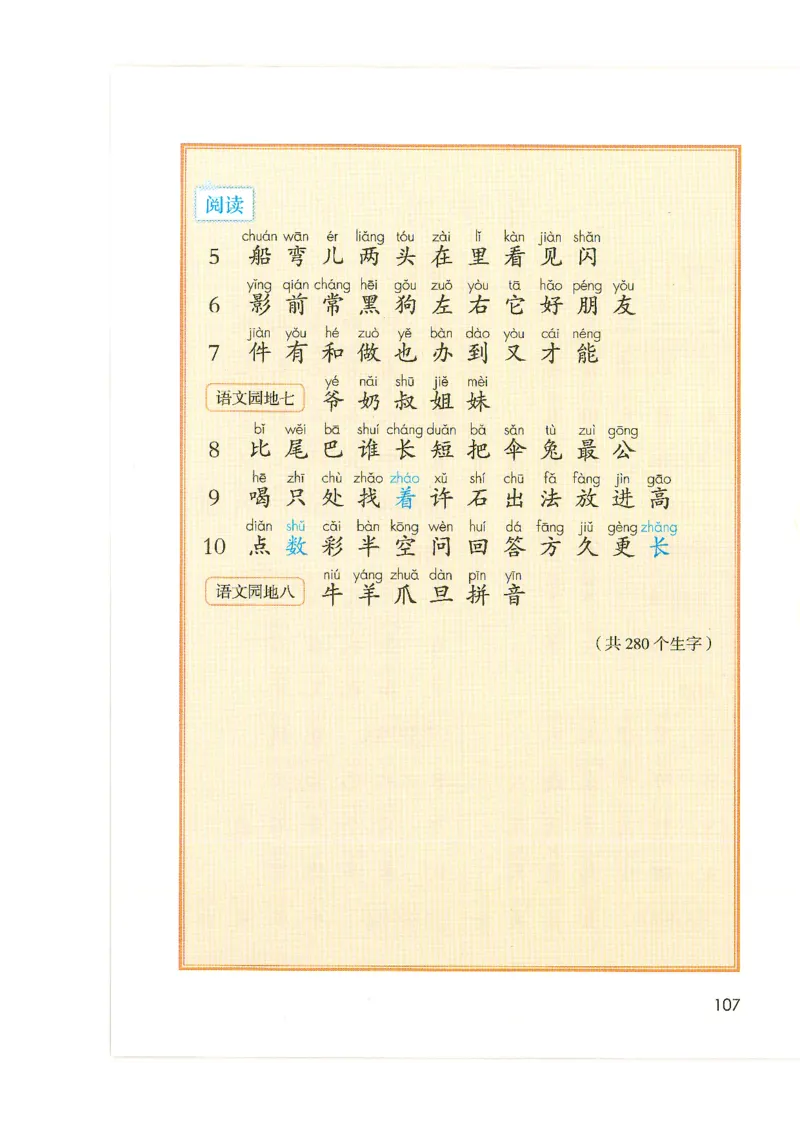 阅读
chuán wān ér liǎng tóu zài lǐ kàn jiàn shǎn
5 船 弯 儿 两 头 在 里 看 见 闪
yǐng qián cháng hēi gǒu zuǒ yòu tā hǎo péng yǒu
6 影 前 常 黑 狗 左 右 它 好 朋 友
jiàn yǒu hé zuò yě bàn dào yòu cái néng
7 件 有 和 做 也 办 到 又 才 能
yé nǎi shū jiě mèi
语文园地七 爷 奶 叔 姐 妹
bǐ wěi bā shuí cháng duǎn bǎ sǎn tù zuì gōng
8 比 尾 巴 谁 长 短 把 伞 兔 最 公
hē zhī chù zhǎo zháo xǔ shí chū fǎ fàng jìn gāo
9 喝 只 处 找 着 许 石 出 法 放 进 高
diǎn shǔ cǎi bàn kōng wèn huí dá fāng jiǔ gèng zhǎng
10 点 数 彩 半 空 问 回 答 方 久 更 长
niú yáng zhuǎ dàn pīn yīn
语文园地八 牛 羊 爪 旦 拼 音
（共 280 个生字）
107